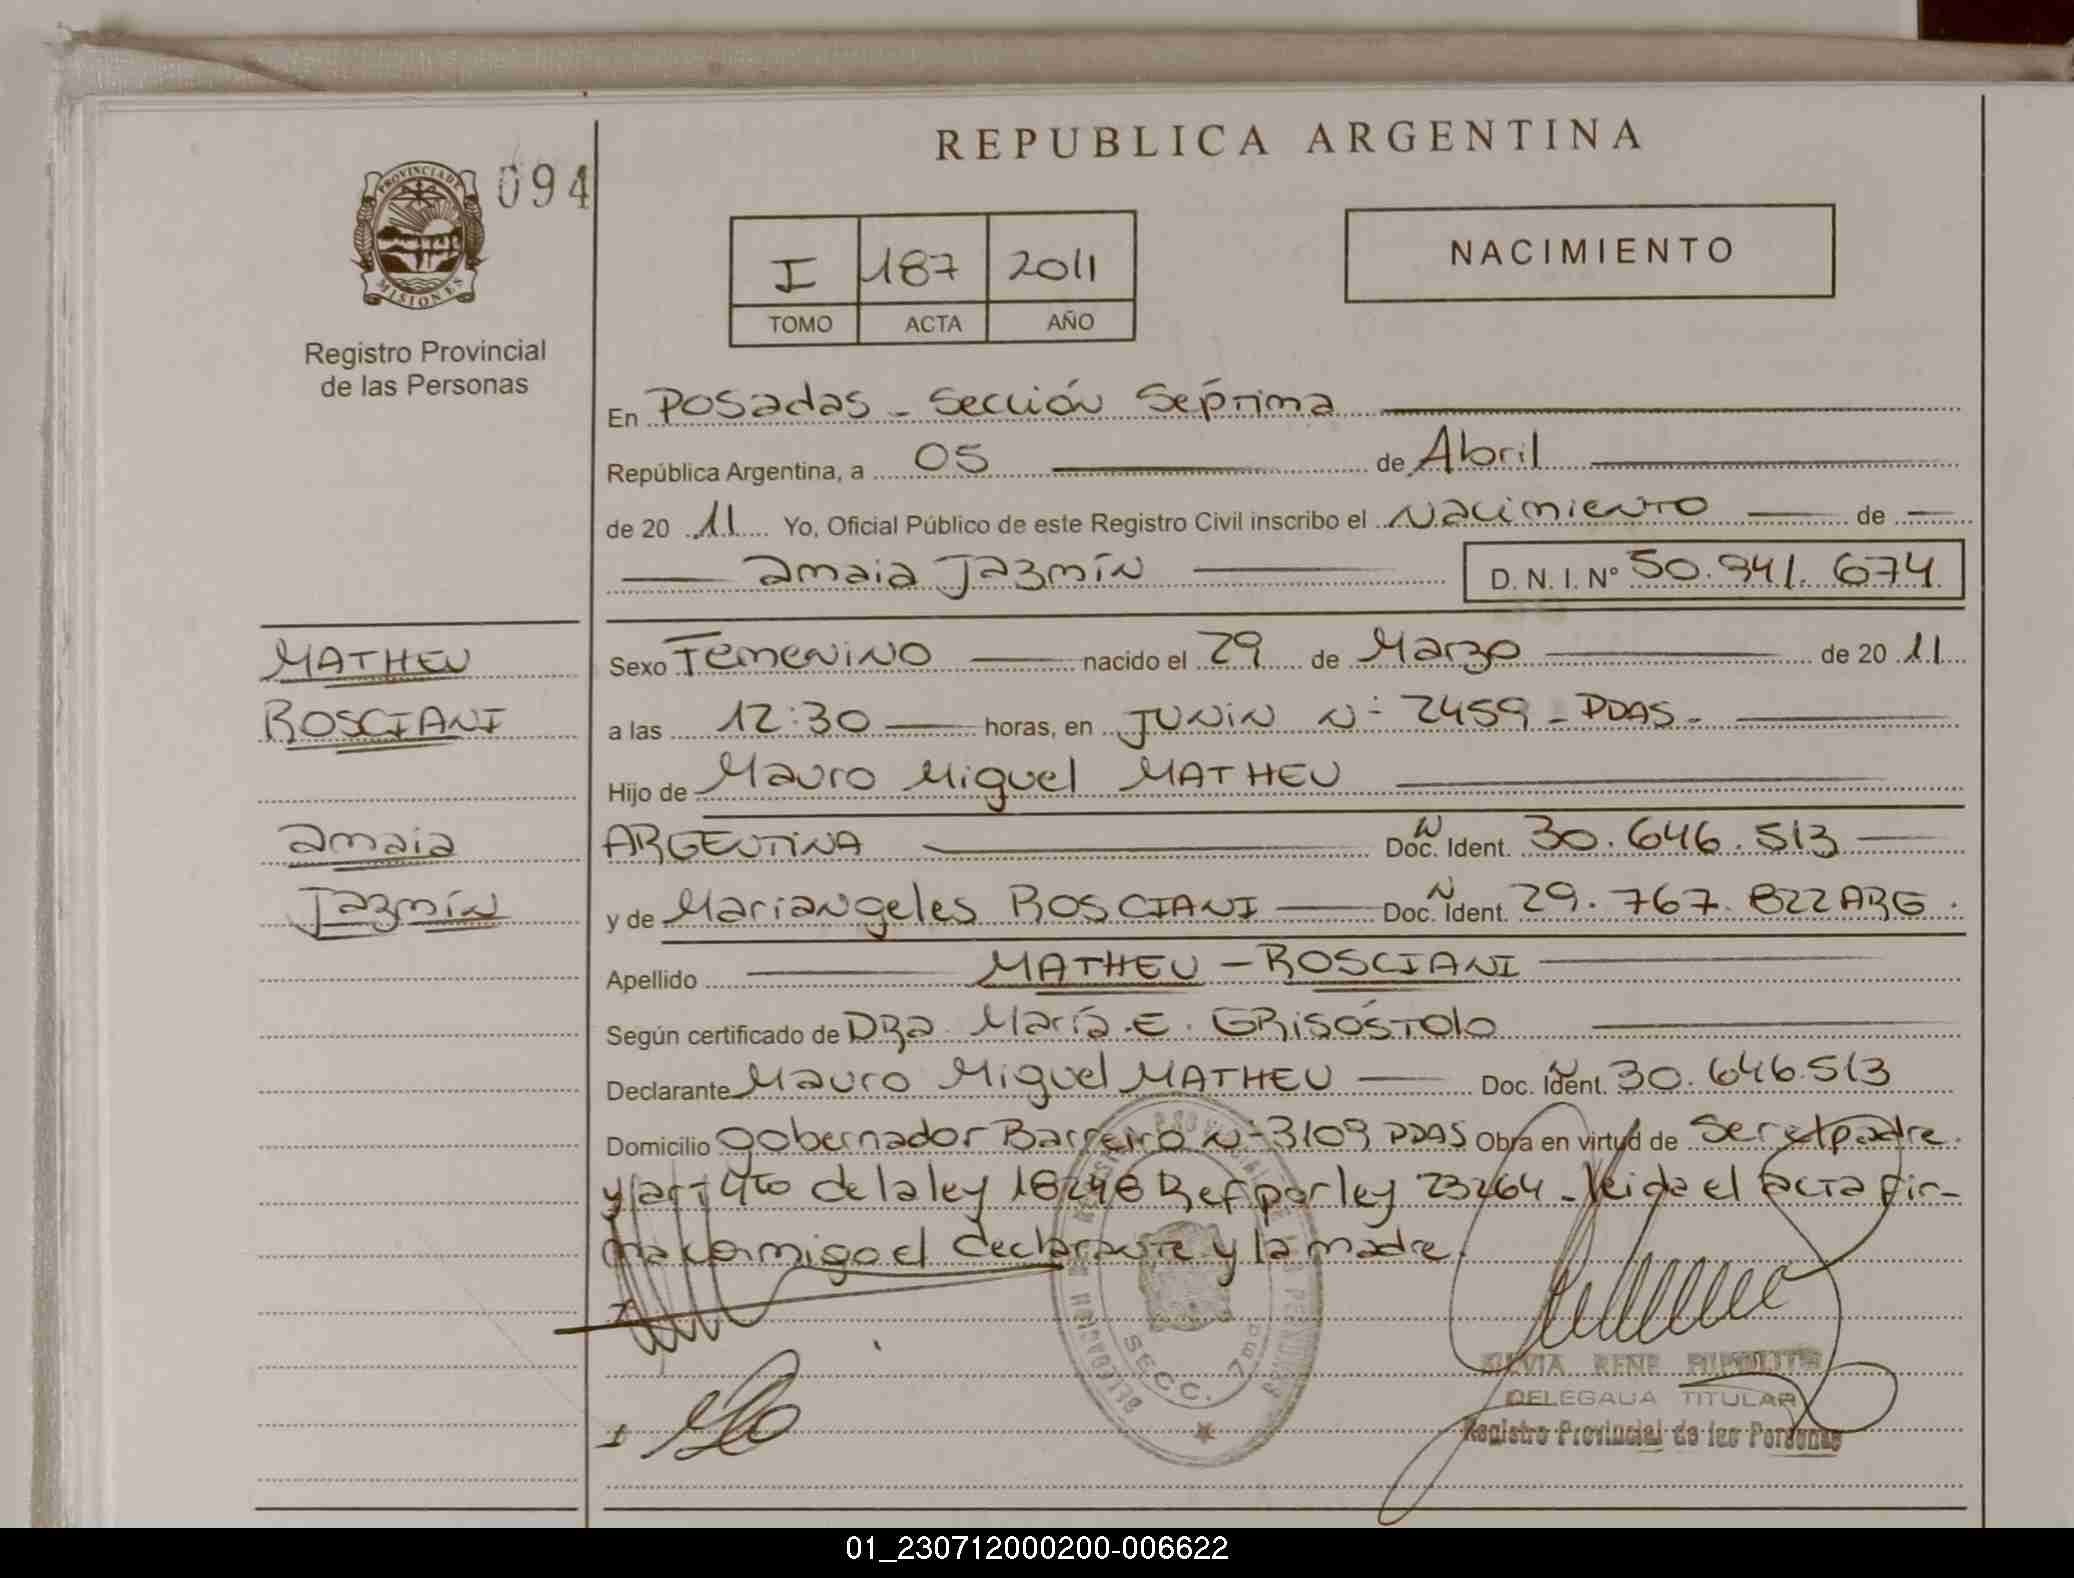 REPUBLICA ARGENTINA
PROVINCIA DE
MISIONES
094
Registro Provincial
de las Personas
I 187 2011
TOMO ACTA AÑO
NACIMIENTO
En Posadas - Sección Séptima
República Argentina, a 05 de Abril
de 20 11 Yo, Oficial Público de este Registro Civil inscribo el Nacimiento de
Amaia Jazmín D. N. I. Nº 50.941.674
MATHEU
ROSCIANI
Amaia
Jazmín
Sexo Femenino nacido el 29 de Marzo de 20 11
a las 12:30 horas, en JUNIN Nº 2459 - PDAS -
Hijo de Mauro Miguel MATHEU
ARGENTINA Doc. N Ident. 30.646.513
y de Mariangeles ROSCIANI Doc. N Ident. 29.767.822 ARG.
Apellido MATHEU - ROSCIANI
Según certificado de DRa María E. GRISÓSTOlo
Declarante Mauro Miguel MATHEU Doc. N Ident. 30.646.513
Domicilio Gobernador Barreiro Nº 3109 PDAS Obra en virtud de Ser el padre
y art 4to de la ley 18248 Ref por ley 23264 - Leida el acta fir-
ma conmigo el declarante y la madre.
SECC. 7ma
SILVIA RENE
DELEGADA TITULAR
Registro Provincial de las Personas
01_230712000200-006622